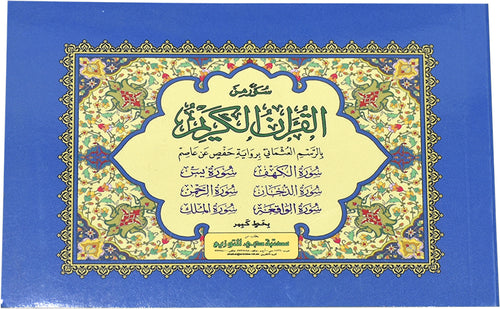 سور من
القرآن الكريم
بالرسم العثماني برواية حفص عن عاصم
سورة الكهف سورة يس
سورة الدخان سورة الرحمن
سورة الواقعة سورة الملك
بخط كبير